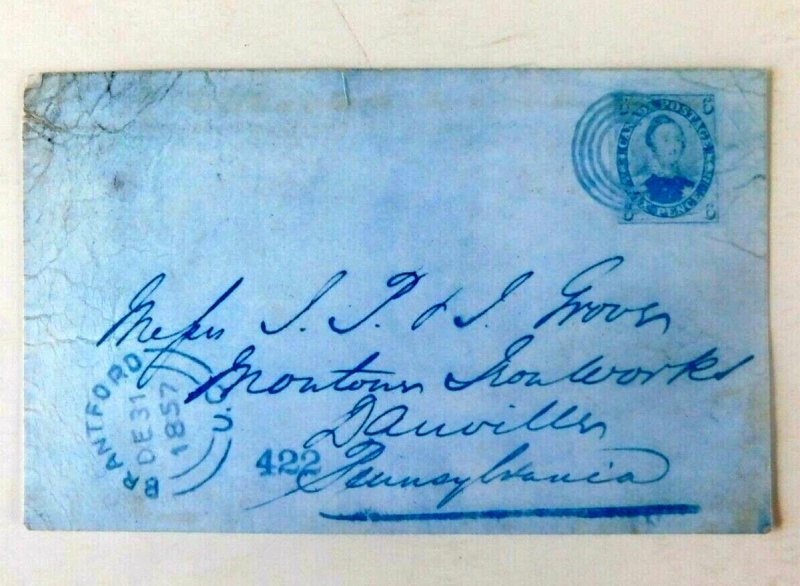 CANADA POSTAGE
SIX PENCE
6 6
Messrs I. P. & I. Grove
Montour Ironworks
Danville
Pennsylvania
BRANTFORD
DE 31
1857
422